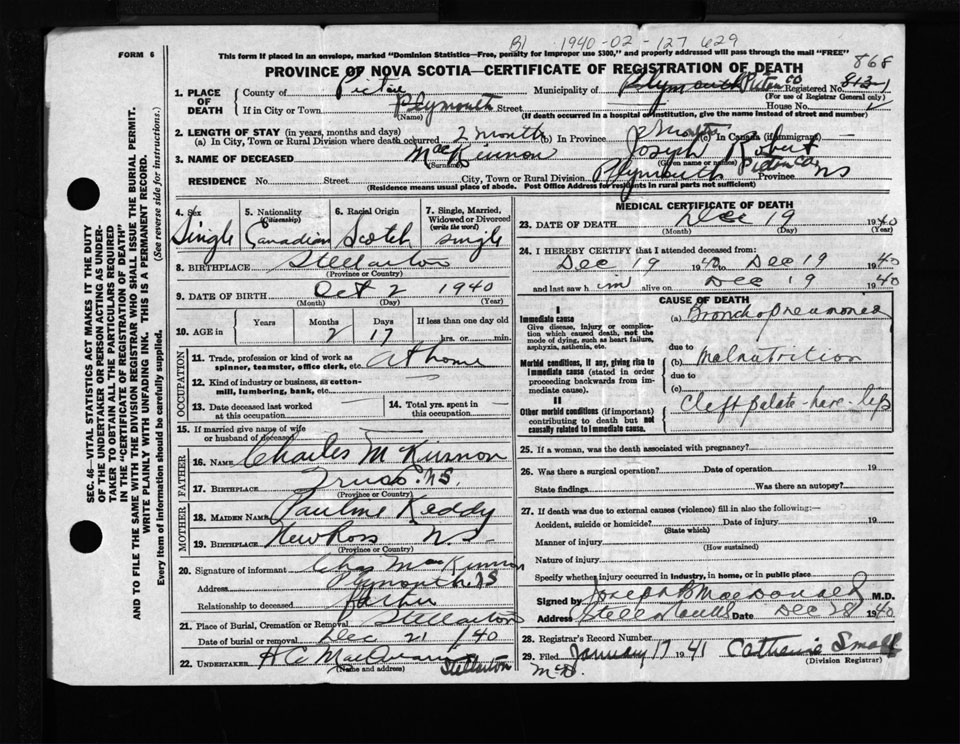 B1 1940-02-127629
FORM 6
This form if placed in an envelope, marked "Dominion Statistics—Free, penalty for improper use $300," and properly addressed will pass through the mail "FREE"
868
PROVINCE OF NOVA SCOTIA—CERTIFICATE OF REGISTRATION OF DEATH
1. PLACE OF DEATH County of Pictou Municipality of Plymouth Pictou Co Registered No.
(For use of Registrar General only)
If in City or Town Plymouth Street House No.
(Name) (If death occurred in a hospital or institution, give the name instead of street and number)
2. LENGTH OF STAY (in years, months and days)
(a) In City, Town or Rural Division where death occurred 2 months (b) In Province 2 months (c) In Canada (if immigrant)
3. NAME OF DECEASED MacKinnon Joseph Robert
(Surname) (Given name or names)
RESIDENCE No. Street City, Town or Rural Division Plymouth Pictou Co. Province NS
(Residence means usual place of abode. Post Office Address for residents in rural parts not sufficient)
4. Sex Single
5. Nationality (Citizenship) Canadian
6. Racial Origin Scotch
7. Single, Married, Widowed or Divorced (write the word) single
8. BIRTHPLACE Stellarton
(Province or Country)
9. DATE OF BIRTH Oct 2 1940
(Month) (Day) (Year)
10. AGE in Years Months 2 Days 17 If less than one day old hrs. or min.
OCCUPATION
11. Trade, profession or kind of work as spinner, teamster, office clerk, etc. at home
12. Kind of industry or business, as cotton-mill, lumbering, bank, etc.
13. Date deceased last worked at this occupation
14. Total yrs. spent in this occupation
15. If married give name of wife or husband of deceased
FATHER
16. NAME Charles McKinnon
17. BIRTHPLACE Truro N.S.
(Province or Country)
MOTHER
18. MAIDEN NAME Pauline Keddy
19. BIRTHPLACE New Ross NS
(Province or Country)
20. Signature of informant Chas MacKinnon
Address Plymouth NS
Relationship to deceased father
21. Place of Burial, Cremation or Removal Stellarton
Date of burial or removal Dec 21 / 40
22. UNDERTAKER Stellarton
(Name and address)
MEDICAL CERTIFICATE OF DEATH
23. DATE OF DEATH Dec 19 1940
(Month) (Day) (Year)
24. I HEREBY CERTIFY that I attended deceased from:
Dec 19 1940 to Dec 19 1940
and last saw him alive on Dec 19 1940
CAUSE OF DEATH
I
Immediate cause
Give disease, injury or complication which caused death, not the mode of dying, such as heart failure, asphyxia, asthenia, etc.
(a) Bronchopneumonia
due to
Morbid conditions, if any, giving rise to immediate cause (stated in order proceeding backwards from immediate cause).
(b) Malnutrition
due to
(c)
II
Other morbid conditions (if important) contributing to death but not causally related to immediate cause.
Cleft palate - hare - lip
25. If a woman, was the death associated with pregnancy?
26. Was there a surgical operation? Date of operation 19
State findings Was there an autopsy?
27. If death was due to external causes (violence) fill in also the following:—
Accident, suicide or homicide? Date of injury 19
(State which)
Manner of injury
(How sustained)
Nature of injury
Specify whether injury occurred in industry, in home, or in public place
Signed by Joseph B MacDonald M.D.
Address Date Dec 28 1940
28. Registrar's Record Number
29. Filed January 17 1941 Catherine Small
(Division Registrar)
SEC. 46—VITAL STATISTICS ACT MAKES IT THE DUTY
OF THE UNDERTAKER OR PERSON ACTING AS UNDERTAKER TO OBTAIN ALL THE PARTICULARS REQUIRED
IN THE "CERTIFICATE OF REGISTRATION OF DEATH"
AND TO FILE THE SAME WITH THE DIVISION REGISTRAR WHO SHALL ISSUE THE BURIAL PERMIT.
WRITE PLAINLY WITH UNFADING INK. THIS IS A PERMANENT RECORD.
Every item of information should be carefully supplied. (See reverse side for instructions.)